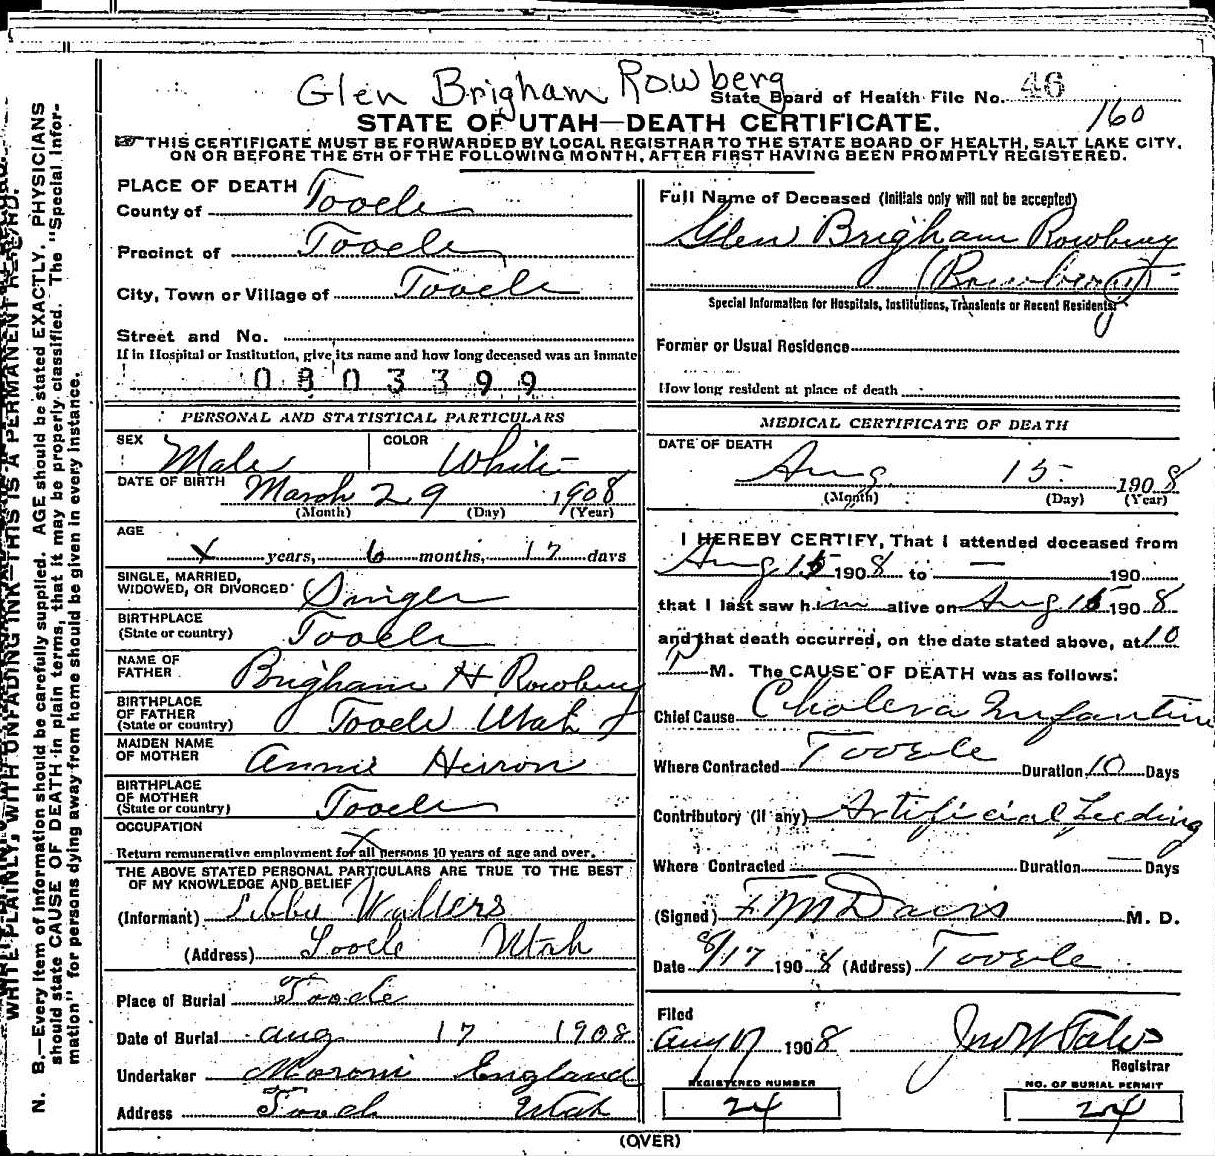 Glen Brigham Rowberg
State Board of Health File No. 46
160
STATE OF UTAH—DEATH CERTIFICATE.
THIS CERTIFICATE MUST BE FORWARDED BY LOCAL REGISTRAR TO THE STATE BOARD OF HEALTH, SALT LAKE CITY,
ON OR BEFORE THE 5TH OF THE FOLLOWING MONTH, AFTER FIRST HAVING BEEN PROMPTLY REGISTERED.
WRITE PLAINLY, WITH UNFADING INK—THIS IS A PERMANENT RECORD.
N. B.—Every item of information should be carefully supplied. AGE should be stated EXACTLY. PHYSICIANS
should state CAUSE OF DEATH in plain terms, that it may be properly classified. The "Special Infor-
mation" for persons dying away from home should be given in every instance.
PLACE OF DEATH
County of Tooele
Precinct of Tooele
City, Town or Village of Tooele
Street and No.
If in Hospital or Institution, give its name and how long deceased was an inmate
0803399
PERSONAL AND STATISTICAL PARTICULARS
SEX Male COLOR White
DATE OF BIRTH March 29 1908
(Month) (Day) (Year)
AGE
x years, 6 months, 17 days
SINGLE, MARRIED,
WIDOWED, OR DIVORCED Singel
BIRTHPLACE
(State or country) Tooele
NAME OF
FATHER Brigham H Rowbury
BIRTHPLACE
OF FATHER
(State or country) Tooele Utah
MAIDEN NAME
OF MOTHER Annie Herron
BIRTHPLACE
OF MOTHER
(State or country) Tooele
OCCUPATION x
Return remunerative employment for all persons 10 years of age and over.
THE ABOVE STATED PERSONAL PARTICULARS ARE TRUE TO THE BEST
OF MY KNOWLEDGE AND BELIEF
(Informant) Libbie Walters
(Address) Tooele Utah
Place of Burial Tooele
Date of Burial aug 17 1908
Undertaker Moroni England
Address Tooele Utah
Full Name of Deceased (Initials only will not be accepted)
Glen Brigham Rowbury
Special Information for Hospitals, Institutions, Transients or Recent Residents
Former or Usual Residence
How long resident at place of death
MEDICAL CERTIFICATE OF DEATH
DATE OF DEATH
Aug. 15 1908
(Month) (Day) (Year)
I HEREBY CERTIFY, That I attended deceased from
Aug 15 1908 to — 190
that I last saw him alive on Aug 15 1908
and that death occurred, on the date stated above, at 10
P M. The CAUSE OF DEATH was as follows:
Chief Cause Cholera Infantum
Where Contracted Tooele Duration 10 Days
Contributory (if any) Artificial Feeding
Where Contracted — Duration — Days
(Signed) F M Davis M. D.
Date 8/17 1908 (Address) Tooele
Filed
Aug 17 1908 Jno W Tate
Registrar
REGISTERED NUMBER
24
NO. OF BURIAL PERMIT
24
(OVER)